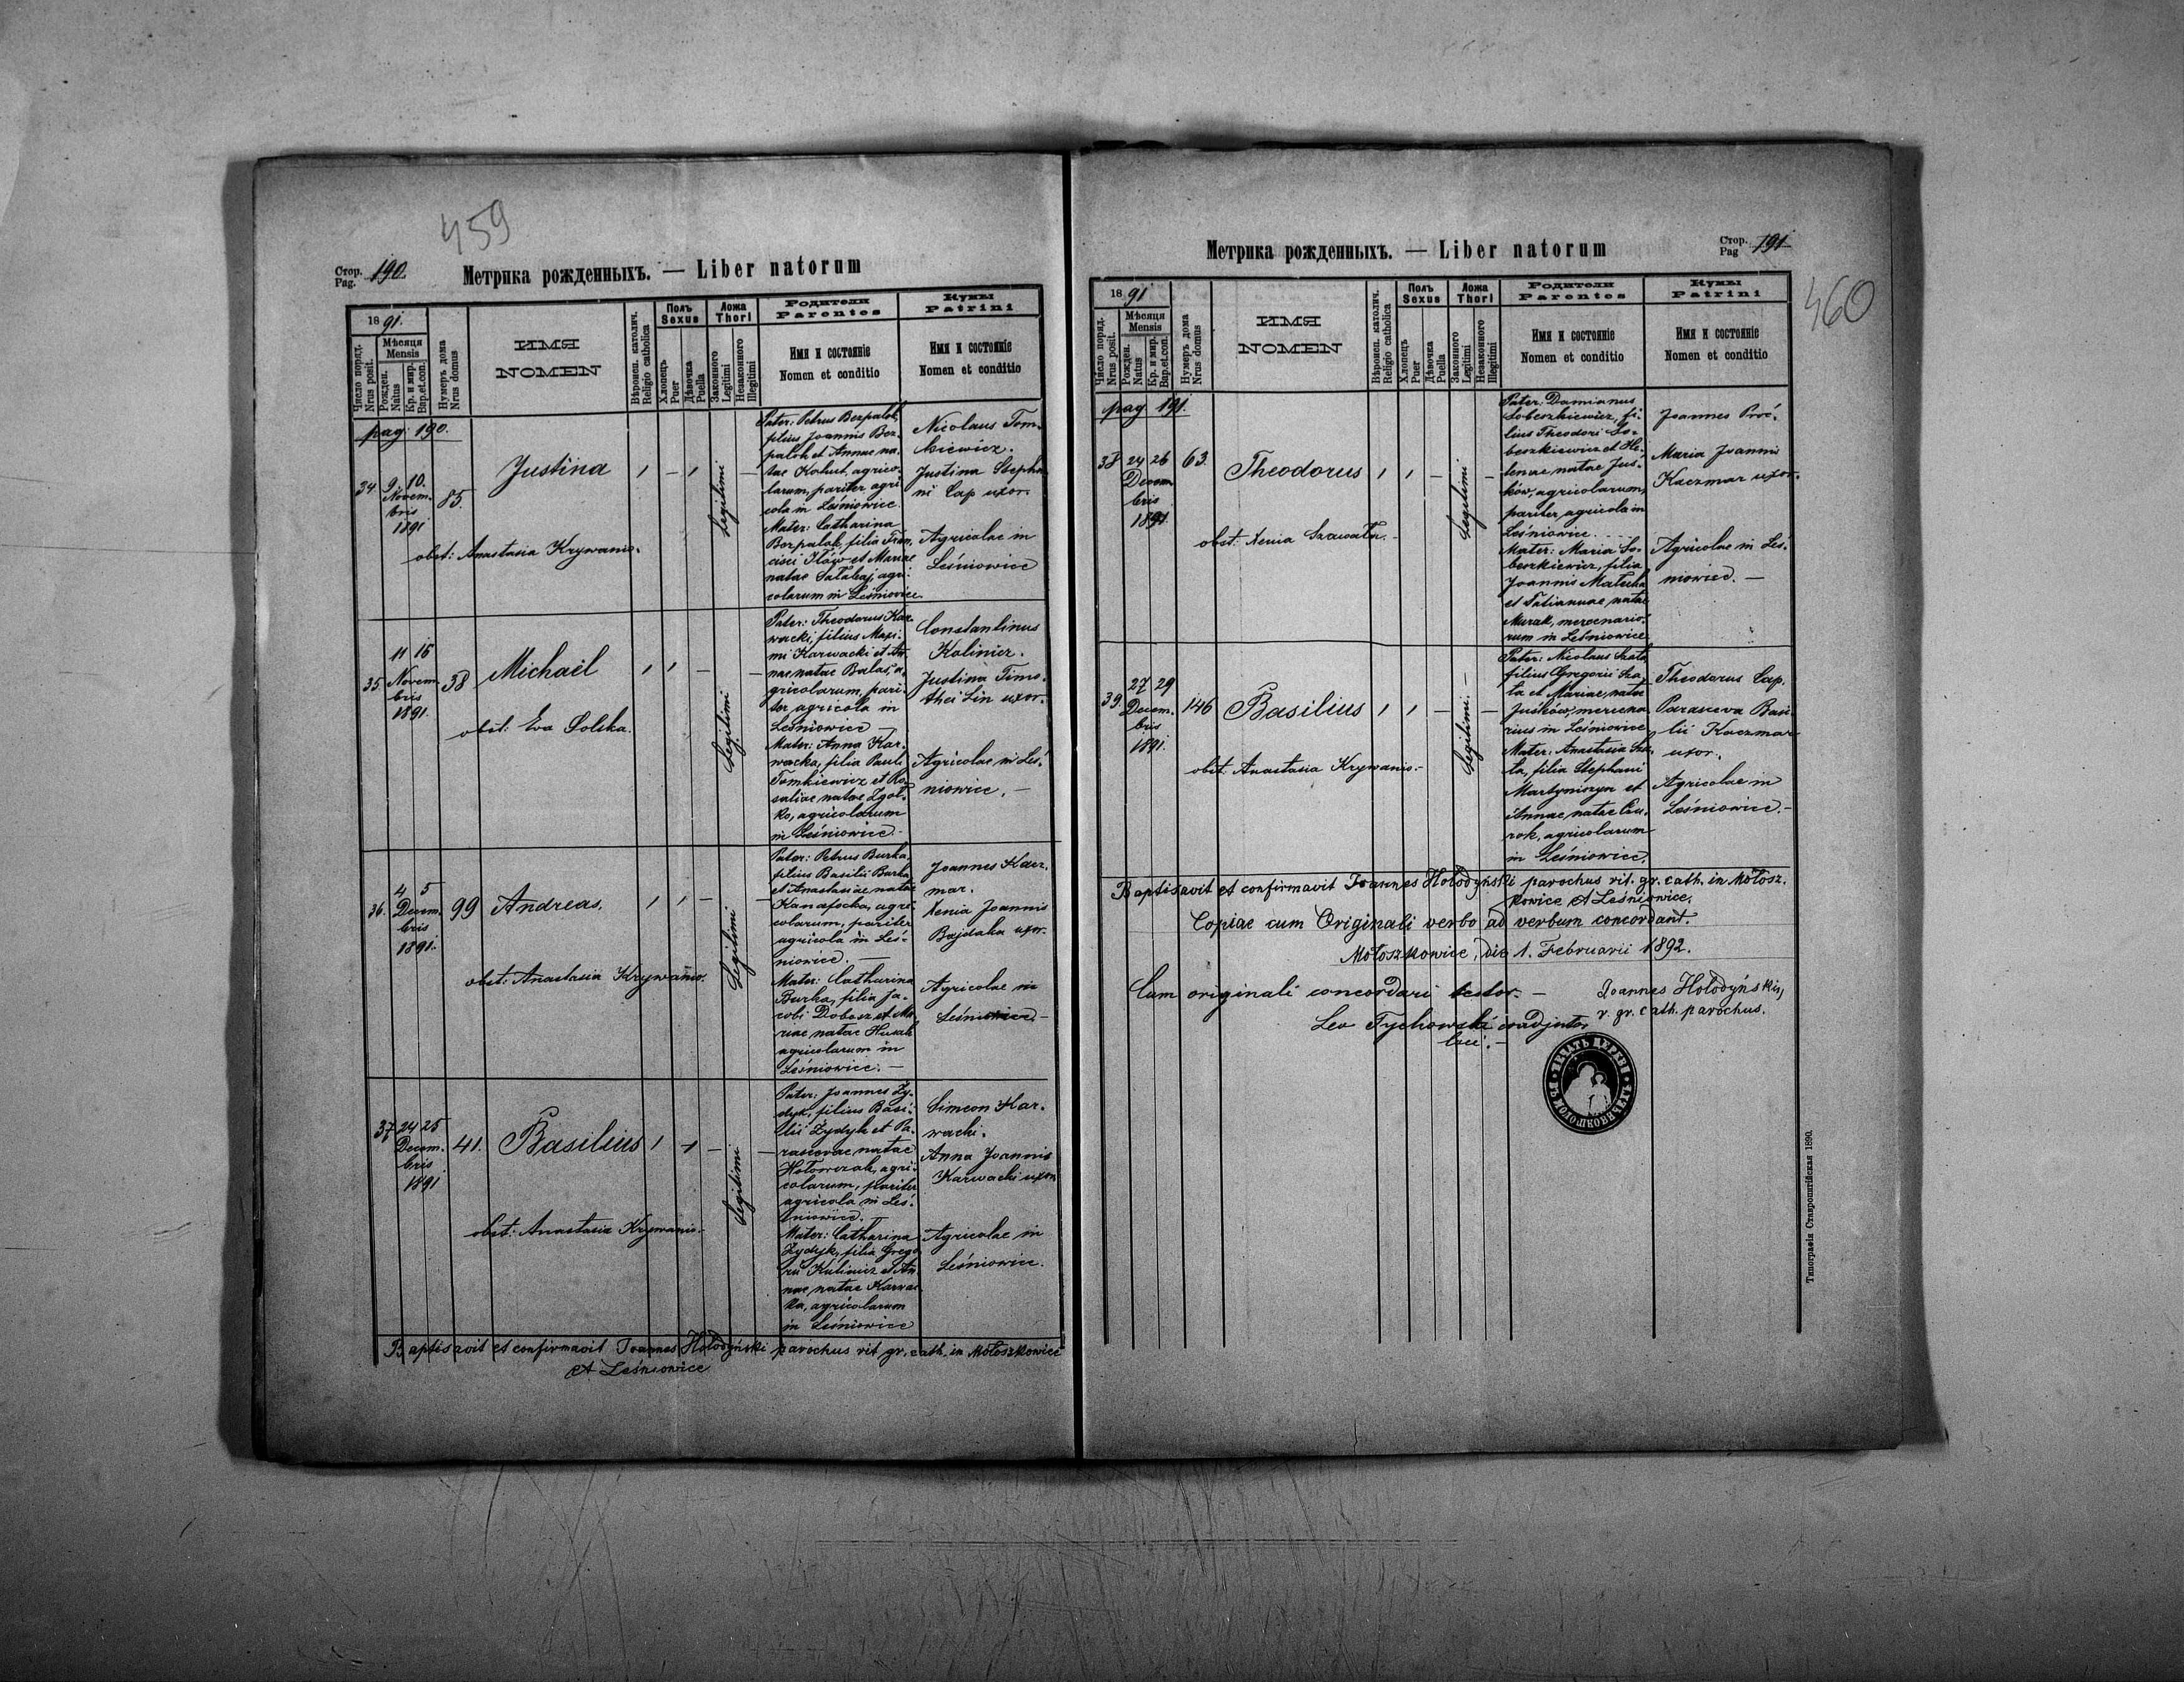 459
Стор. Pag. 190.
Метрика рожденныхъ. — Liber natorum
1891.
Число поряд. Nrus posit.
Мѣсяця Mensis
Рожден. Natus
Кр. и мир. Bap. et con.
Нумеръ дома Nrus domus
ИМЯ
NOMEN
Вѣроисп. католич. Religio catholica
Полъ Sexus
Хлопецъ Puer
Дѣвочка Puella
Ложа Thori
Законного Legitimi
Незаконного Illegitimi
Родители
Parentes
Имя и состояніе
Nomen et conditio
Кумы
Patrini
Имя и состояніе
Nomen et conditio
pag. 190.
34. 9. 10. Novem-
bris
1891
85.
Justina
obst: Anastasia Krywanio.
Legitimi
Pater: Petrus Bezpalok,
filius Joannis Bez-
palok et Annae na-
tae Kohut, agrico-
larum, pariter agri-
cola in Leśniowice.
Mater: Catharina
Bezpalok, filia Fran-
cisci Iłów et Mariae
natae Sałabaj, agri-
colarum in Leśniowice.
Nicolaus Tom-
kiewicz.
Justina Stepha-
ni Cap uxor.
Agricolae in
Leśniowice
35. 11 15
Novem-
bris
1891.
38
Michaël
obst: Eva Solska.
Legitimi
Pater: Theodorus Kar-
wacki, filius Maxi-
mi Karwacki et An-
nae natae Balas, a-
gricolarum, pari-
ter agricola in
Leśniowice
Mater: Anna Kar-
wacka, filia Pauli
Tomkiewicz et Ro-
saliae natae Zgoł-
ko, agricolarum
in Leśniowice.-
Constantinus
Kolinicz.
Justina Timo-
thei Lin uxor.
Agricolae in Leś-
niowice. —
36. 4 5
Decem-
bris
1891.
99
Andreas.
obst: Anastasia Krywanio.
Legitimi
Pater: Petrus Burka,
filius Basilii Burka
et Anastasiae natae
Kanafocka, agri-
colarum, pariter
agricola in Leś-
niowice. —
Mater: Catharina
Burka, filia Ja-
cobi Dobosz et Ma-
riae natae Husak
agricolarum in
Leśniowice. —
Joannes Kacz-
mar.
Xenia Joannis
Bajdaka uxor.
Agricolae in
Leśniowice.-
37 24 25
Decem-
bris
1891
41.
Basilius
obst: Anastasia Krywanio.
Legitimi
Pater: Joannes Zy-
dyk, filius Basi-
lii Zydyk et Pa-
rascevae natae
Hołowczak, agri-
colarum, pariter
agricola in Leś-
niowice. —
Mater: Catharina
Zydyk, filia Grego-
rii Kulinicz et An-
nae, natae Karwac-
ka, agricolarum
in Leśniowice
Simeon Kar-
wacki.
Anna Joannis
Karwacki uxor
Agricolae in
Leśniowice.
Baptisavit et confirmavit Joannes Hołodyński parochus rit. gr. cath. in Mołoszkowice
et Leśniowice
Метрика рожденныхъ. — Liber natorum
Стор. Pag 191
460
1891
Число поряд. Nrus posit.
Мѣсяця Mensis
Рожден. Natus
Кр. и мир. Bap. et con.
Нумеръ дома Nrus domus
ИМЯ
NOMEN
Вѣроисп. католич. Religio catholica
Полъ Sexus
Хлопецъ Puer
Дѣвочка Puella
Ложа Thori
Законного Legitimi
Незаконного Illegitimi
Родители
Parentes
Имя и состояніе
Nomen et conditio
Кумы
Patrini
Имя и состояніе
Nomen et conditio
pag. 191.
38 24 26
Decem-
bris
1891
63.
Theodorus
obst: Xenia Szawała.
Legitimi
Pater: Damianus
Sobeszkiewicz, fi-
lius Theodori So-
beszkiewicz et He-
lenae, natae Jus-
ków, agricolarum,
pariter, agricola in
Leśniowice.
Mater: Maria So-
beszkiewicz, filia
Joannis Matecha
et Tatiannae natae
Murak, mercenario-
rum in Leśniowice
Joannes
Maria Joannis
Kaczmar uxor.
Agricolae in Leś-
niowice. —
39. 27 29
Decem-
bris
1891.
146
Basilius
obst: Anastasia Krywanio.-
Legitimi. —
Pater: Nicolaus Szata
filius Gregorii Sza-
ta et Mariae, natae
Juśków, mercena-
rius in Leśniowice
Mater: Anastasia Sza-
ta, filia Stephani
Martyniszyn et
Annae, natae Ciu-
rok, agricolarum
in Leśniowice.
Theodorus Cap.
Parasceva Basi-
lii Kaczmar
uxor.
Agricolae in
Leśniowice.-
Baptisavit et confirmavit Joannes Hołodyński parochus rit. gr. cath. in Mołosz-
kowice et Leśniowice.
Copiae cum Originali verbo ad verbum concordant.
Mołoszkowice, die 1. Februarii 1892.
Cum originali concordari testor. —
Joannes Hołodyński,
r. gr. cath. parochus.
Leo Tychowski coadjutor
loci. —
ПЕЧАТЬ ЦЕРКВИ
Типографія Ставропигійская 1890.